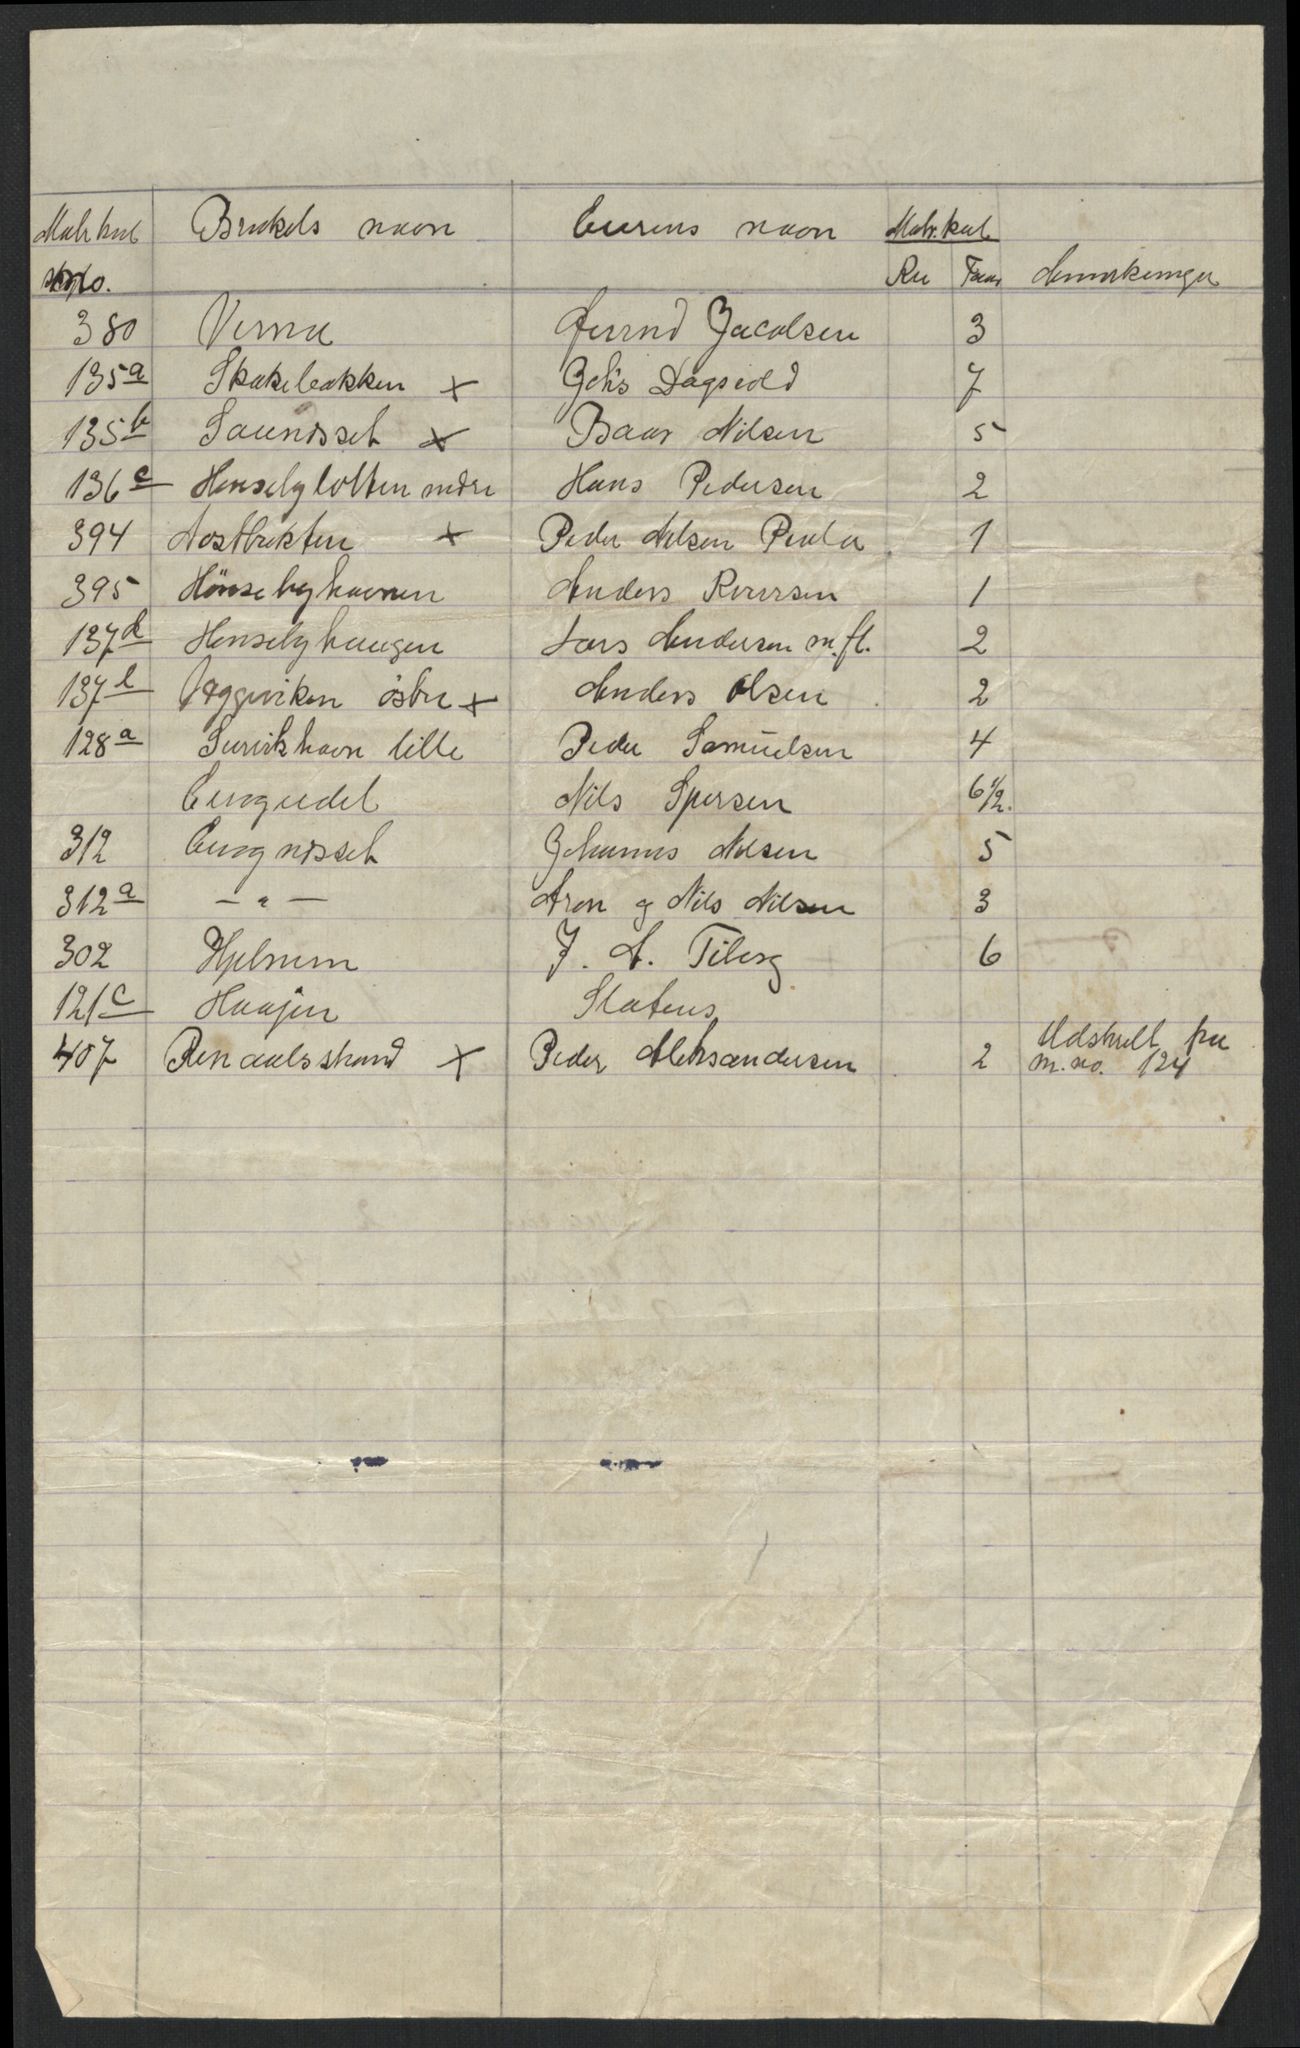 Matrkul Brukets navn Eierens navn Matr.kul
No. Rei Faav Anmerkninger
380 Verna Øivind Jacobsen 3
135a Skakebakken x Johs Dagsvold 7
135b Sauensset x Baar Nilsen 5
136c Hønseby lotten nedre Hans Pedersen 2
394 Aostbukten x Peder Nilsen 1
395 Hönsebyhavnen Anders Reiersen 1
137d Hønsebyhaugen Lars Andersen m.fl. 2
137e Væggeviken östre x Anders Olsen 2
128a Survikhavn lille Peder Samuelsen 4
Nils Ipersen 6 1/2.
312 Johannes Nilsen 5
312a — " — Aron g Nils Nilsen 3
302 Hjelmen J. A. Tiberg 6
121c Haajen Statens
407 Renaalsstrand x Peder Aleksandersen 2 Udskilt fra
m.no. 124